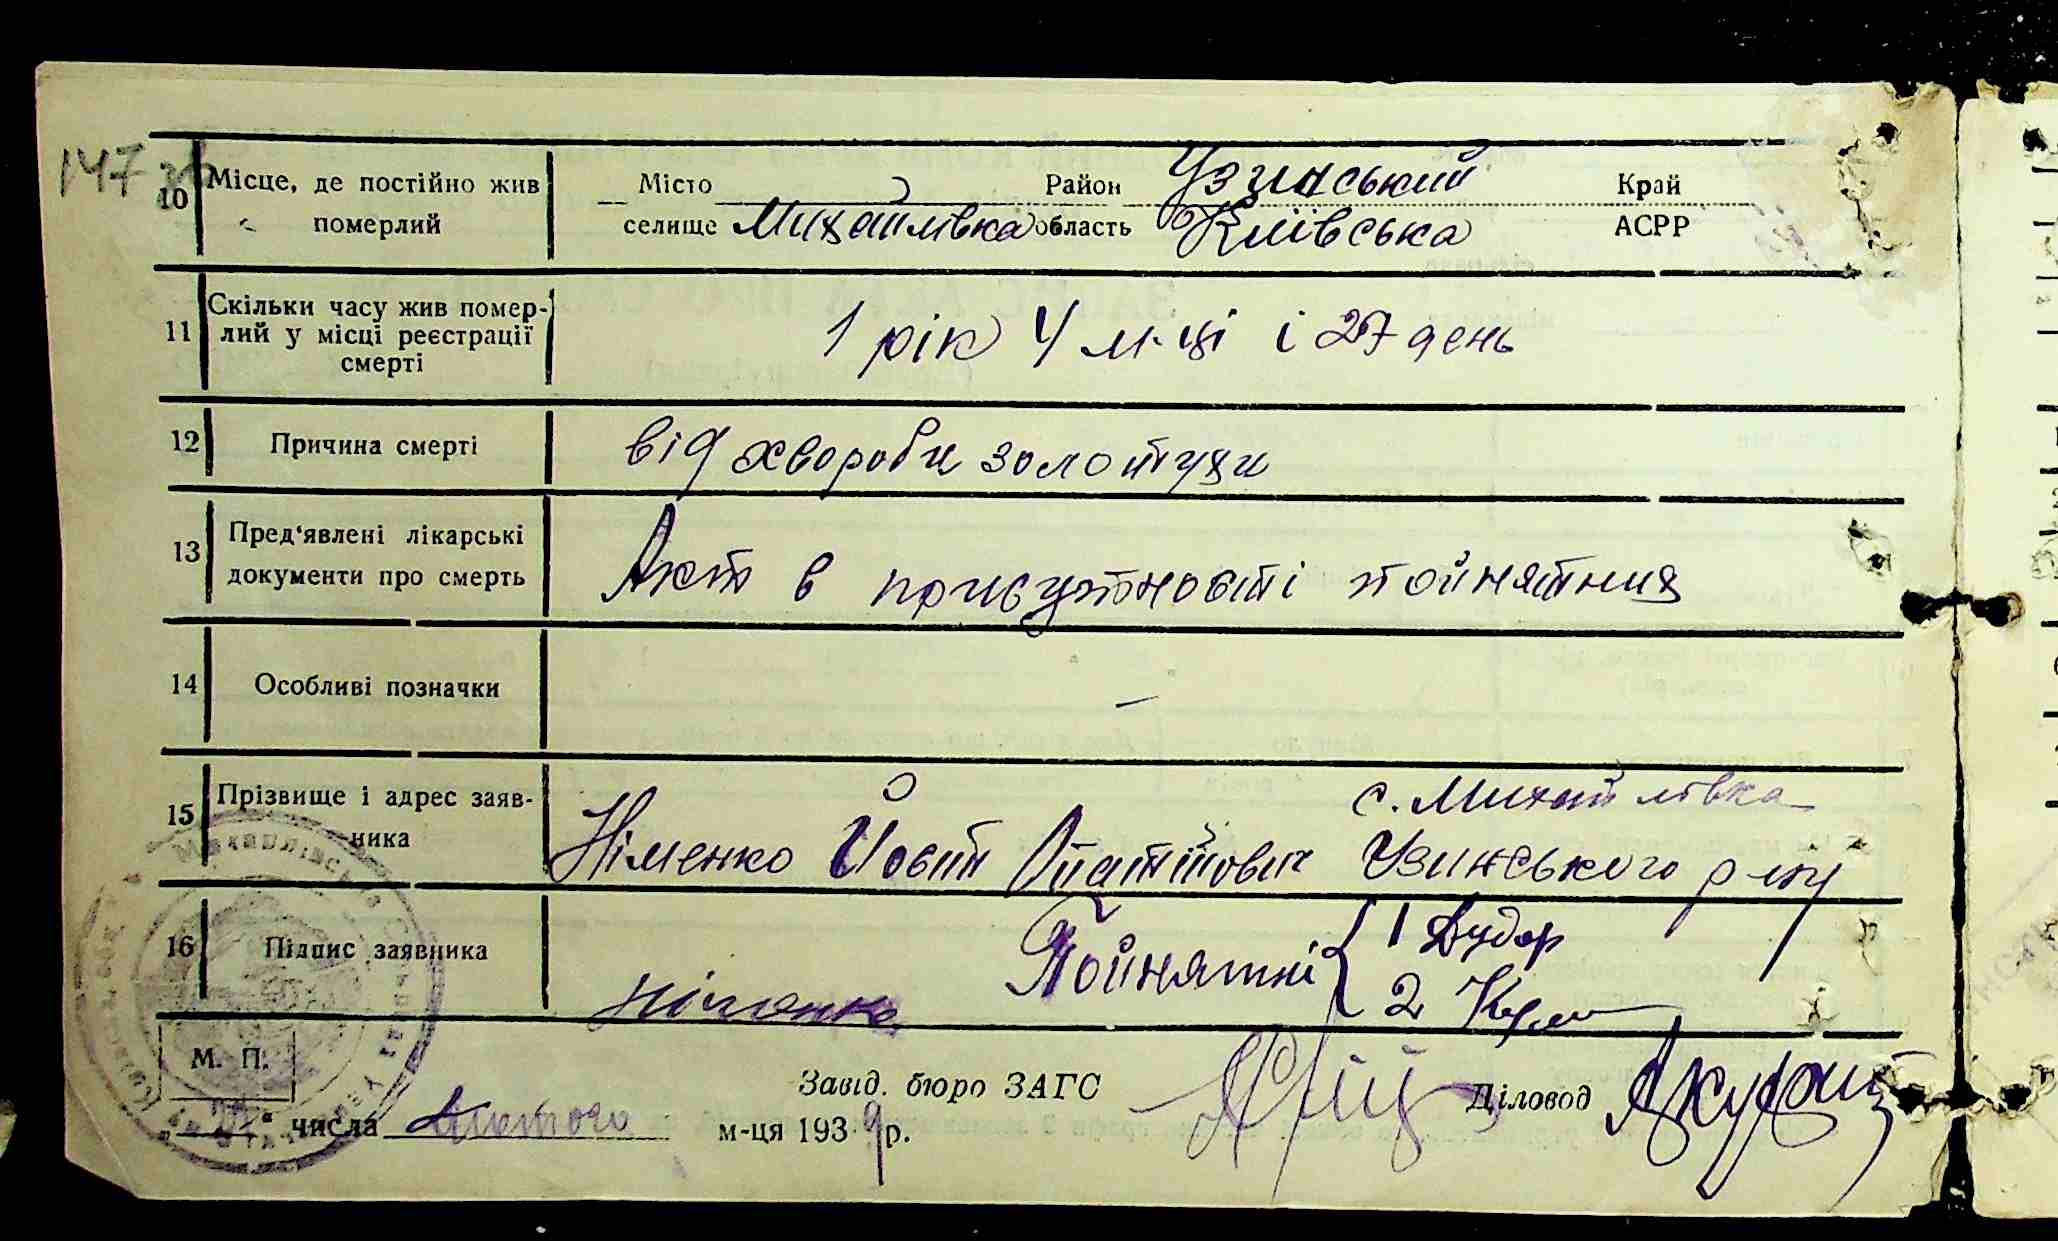 147 зв
10 Місце, де постійно жив померлий
Місто Район Узинський Край
селище Михайлівка область Київська АСРР
11 Скільки часу жив помер-
лий у місці реєстрації
смерті
1 рік 4 м-ці і 27 день
12 Причина смерті від хвороби золотухи
13 Пред'явлені лікарські
документи про смерть
Акт в присутности пойнятних
14 Особливі позначки —
15 Прізвище і адрес заяв-
ника
с. Михайлівка
Німенко Йосип Узинського р-ну
16 Підпис заявника Німенко
Пойнятні 1 Дудар
2
М. П.
Завід. бюро ЗАГС Діловод
числа Лютого м-ця 1939 р.